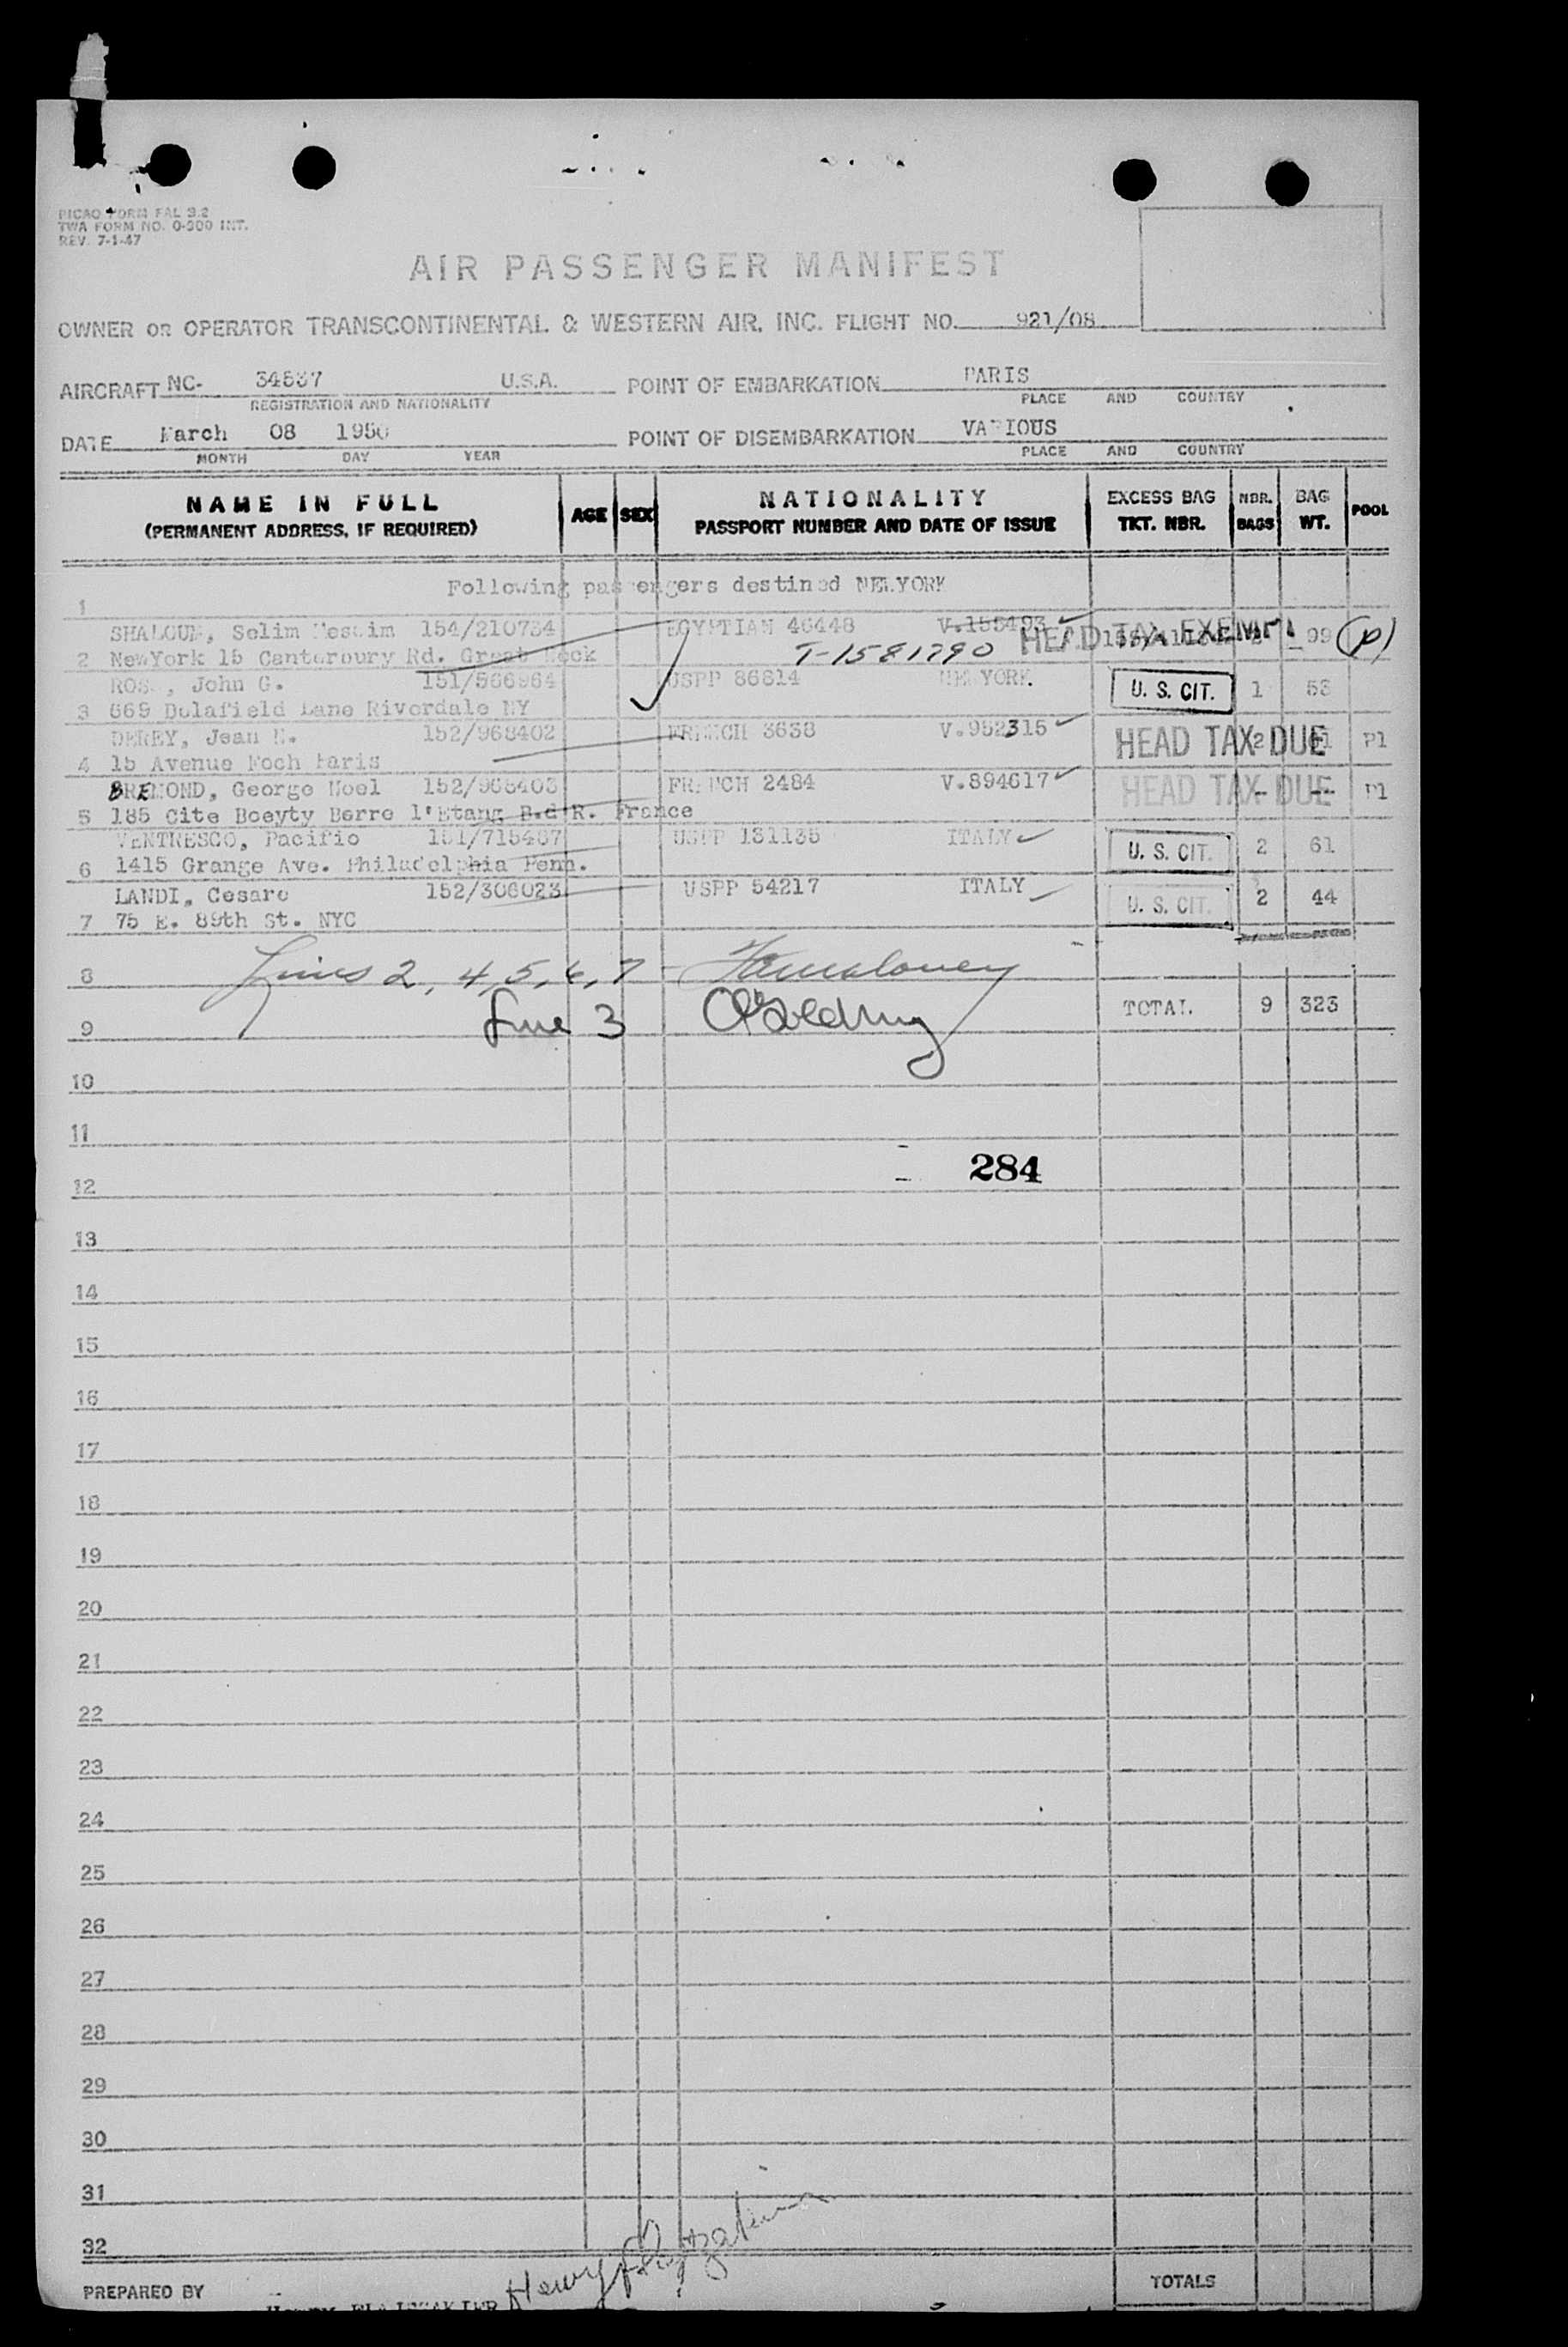 PICAO FORM FAL 3.2
TWA FORM NO. O-300 INT.
REV. 7-1-47
AIR PASSENGER MANIFEST
OWNER OR OPERATOR TRANSCONTINENTAL & WESTERN AIR, INC. FLIGHT NO. 921/08
AIRCRAFT NC- 34537 U.S.A. POINT OF EMBARKATION PARIS
REGISTRATION AND NATIONALITY PLACE AND COUNTRY
DATE March 08 1950 POINT OF DISEMBARKATION VARIOUS
MONTH DAY YEAR PLACE AND COUNTRY
NAME IN FULL AGE SEX NATIONALITY EXCESS BAG NBR. BAG POOL
(PERMANENT ADDRESS, IF REQUIRED) PASSPORT NUMBER AND DATE OF ISSUE TKT. NBR. BAGS WT.
1 Following passengers destined NEWYORK
SHALOUM, Selim 154/210734 EGYPTIAN 46448 V.155493 HEAD TAX EXEMPT 99 (P)
2 NewYork 15 Canterbury Rd. Great Neck T-1581790
John G. 151/566964 USPP 86814 NEW YORK U. S. CIT. 1 58
3 669 Dolafield Lane Riverdale NY
DEREY, Jean 152/968402 FRENCH 3638 V.952315 HEAD TAX DUE 2 61 P1
4 15 Avenue Foch Paris
BREMOND, George Noel 152/968403 FRENCH 2484 V.894617 HEAD TAX DUE - -- P1
5 185 Cite Boeyty Berre l'Etang B.d R. France
VENTRESCO, Pacifio 151/715467 USPP 131135 ITALY U. S. CIT. 2 61
6 1415 Grange Ave. Philadelphia Penn.
LANDI, Cesare 152/306023 USPP 54217 ITALY U. S. CIT. 2 44
7 75 E. 89th St. NYC
8 Lines 2, 4, 5, 6, 7
9 Line 3 TOTAL 9 323
10
11
284
12
13
14
15
16
17
18
19
20
21
22
23
24
25
26
27
28
29
30
31
32
PREPARED BY Henry TOTALS